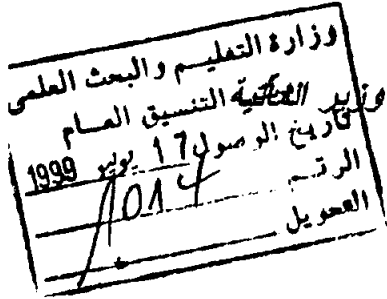 وزارة التعليم والبحث العلمى
التنسيق العام
تاريخ الوصول 17 يوليو 1999
الرقم
التحويل